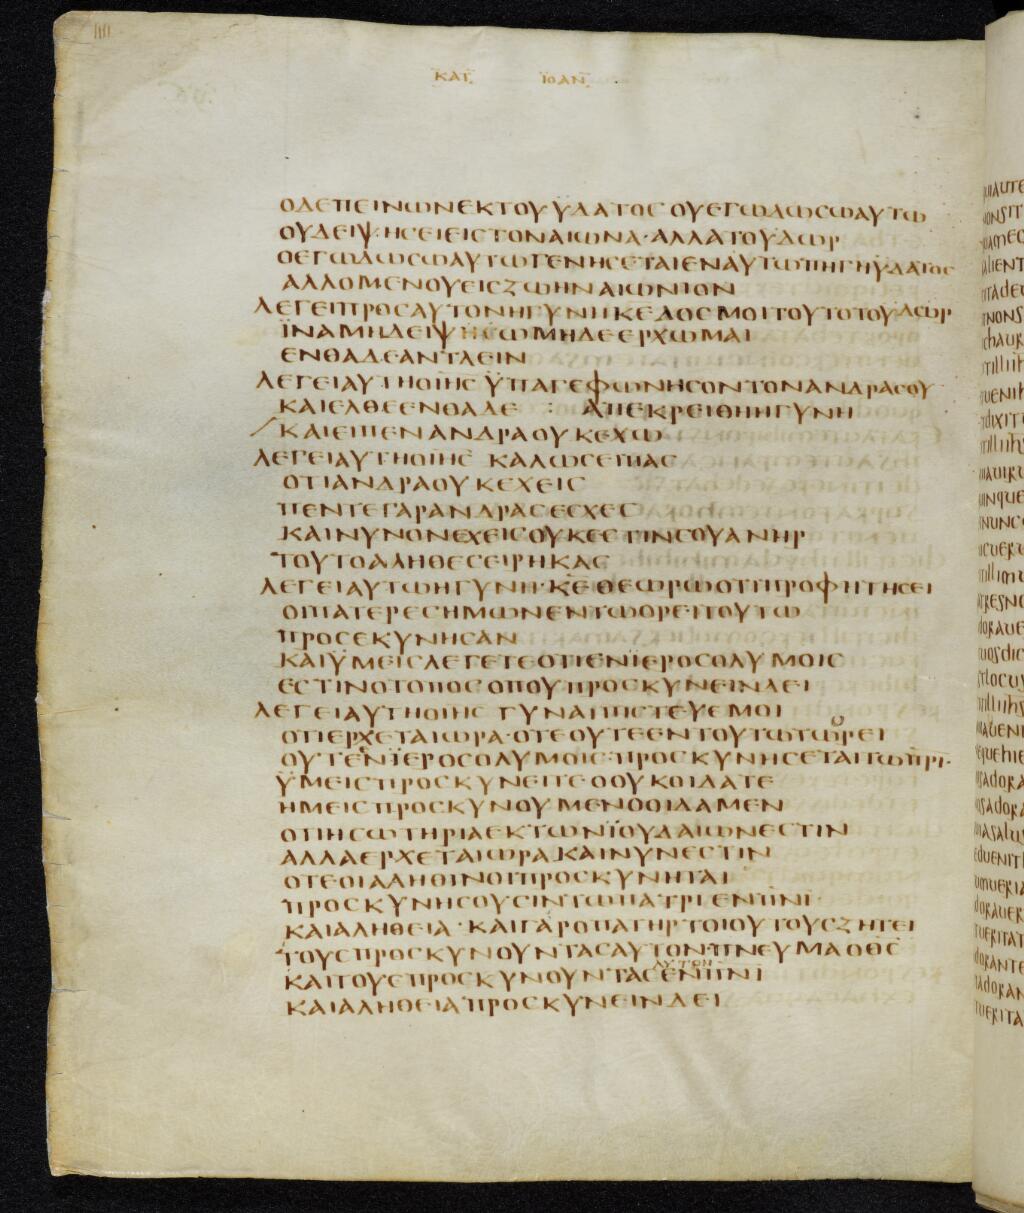 ΚΑΤ ΙΟΑΝ
ΟΔΕΠΕΙΝΩΝΕΚΤΟΥΫΔΑΤΟΣΟΥΕΓΩΔΩΣΩΑΥΤΩ
ΟΥΔΕΙΨΗΣΕΙΕΙΣΤΟΝΑΙΩΝΑ·ΑΛΛΑΤΟΥΔΩΡ
ΟΕΓΩΔΩΣΩΑΥΤΩΓΕΝΗΣΕΤΑΙΕΝΑΥΤΩΠΗΓΗΫΔΑΤΟΣ
ΑΛΛΟΜΕΝΟΥΕΙΣΖΩΗΝΑΙΩΝΙΟΝ
ΛΕΓΕΙΠΡΟΣΑΥΤΟΝΗΓΥΝΗΚΕΔΟΣΜΟΙΤΟΥΤΟΤΟΥΔΩΡ
ΪΝΑΜΗΔΕΙΨΗΣΩΜΗΔΕΕΡΧΩΜΑΙ
ΕΝΘΑΔΕΑΝΤΛΕΙΝ
ΛΕΓΕΙΑΥΤΗΟΙΗΣΫΠΑΓΕΦΩΝΗΣΟΝΤΟΝΑΝΔΡΑΣΟΥ
ΚΑΙΕΛΘΕΕΝΘΑΔΕ : ΑΠΕΚΡΕΙΘΗΗΓΥΝΗ
ΚΑΙΕΙΠΕΝΑΝΔΡΑΟΥΚΕΧΩ
ΛΕΓΕΙΑΥΤΗΟΙΗΣ ΚΑΛΩΣΕΙΠΑΣ
ΟΤΙΑΝΔΡΑΟΥΚΕΧΕΙΣ
ΠΕΝΤΕΓΑΡΑΝΔΡΑΣΕΣΧΕΣ
ΚΑΙΝΥΝΟΝΕΧΕΙΣΟΥΚΕΣΤΙΝΣΟΥΑΝΗΡ
ΤΟΥΤΟΑΛΗΘΕΣΕΙΡΗΚΑΣ
ΛΕΓΕΙΑΥΤΩΗΓΥΝΗ·ΚΕΘΕΩΡΩΟΤΙΠΡΟΦΗΤΗΣΕΙ
ΟΙΠΑΤΕΡΕΣΗΜΩΝΕΝΤΩΟΡΕΙΤΟΥΤΩ
ΠΡΟΣΕΚΥΝΗΣΑΝ
ΚΑΙΫΜΕΙΣΛΕΓΕΤΕΟΤΙΕΝΪΕΡΟΣΟΛΥΜΟΙΣ
ΕΣΤΙΝΟΤΟΠΟΣΟΠΟΥΠΡΟΣΚΥΝΕΙΝΔΕΙ
ΛΕΓΕΙΑΥΤΗΟΙΗΣ ΓΥΝΑΙΠΙΣΤΕΥΕΜΟΙ
ΟΤΙΕΡΧΕΤΑΙΩΡΑ·ΟΤΕΟΥΤΕΕΝΤΟΥΤΩΤΩΟΡΕΙ
ΟΥΤΕΝΪΕΡΟΣΟΛΥΜΟΙΣ·ΠΡΟΣΚΥΝΗΣΕΤΑΙΤΩΠΡΙ·
ΫΜΕΙΣΠΡΟΣΚΥΝΕΙΤΕΟΟΥΚΟΙΔΑΤΕ
ΗΜΕΙΣΠΡΟΣΚΥΝΟΥΜΕΝΟΟΙΔΑΜΕΝ
ΟΤΙΗΣΩΤΗΡΙΑΕΚΤΩΝΪΟΥΔΑΙΩΝΕΣΤΙΝ
ΑΛΛΑΕΡΧΕΤΑΙΩΡΑΚΑΙΝΥΝΕΣΤΙΝ
ΟΤΕΟΙΑΛΗΘΙΝΟΙΠΡΟΣΚΥΝΗΤΑΙ
ΠΡΟΣΚΥΝΗΣΟΥΣΙΝΤΩΠΑΤΡΙΕΝΠΝΙ·
ΚΑΙΑΛΗΘΕΙΑ·ΚΑΙΓΑΡΟΠΑΤΗΡΤΟΙΟΥΤΟΥΣΖΗΤΕΙ
ΤΟΥΣΠΡΟΣΚΥΝΟΥΝΤΑΣΑΥΤΟΝ·ΠΝΕΥΜΑΟΘΣ
ΑΥΤΟΝ
ΚΑΙΤΟΥΣΠΡΟΣΚΥΝΟΥΝΤΑΣΕΝΠΝΙ
ΚΑΙΑΛΗΘΕΙΑΠΡΟΣΚΥΝΕΙΝΔΕΙ